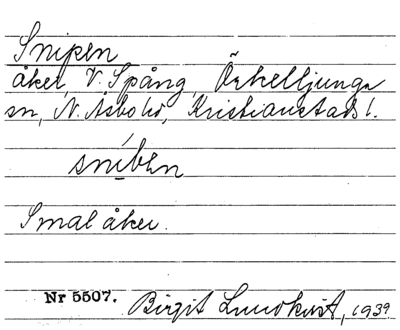 Snipen
åker, V. Spång, Örkelljunga
sn, N. Åsbo hd, Kristianstads l.
sni̱bεn
Smal åker.
Nr 5507. Birgit Lundkvist, 1939